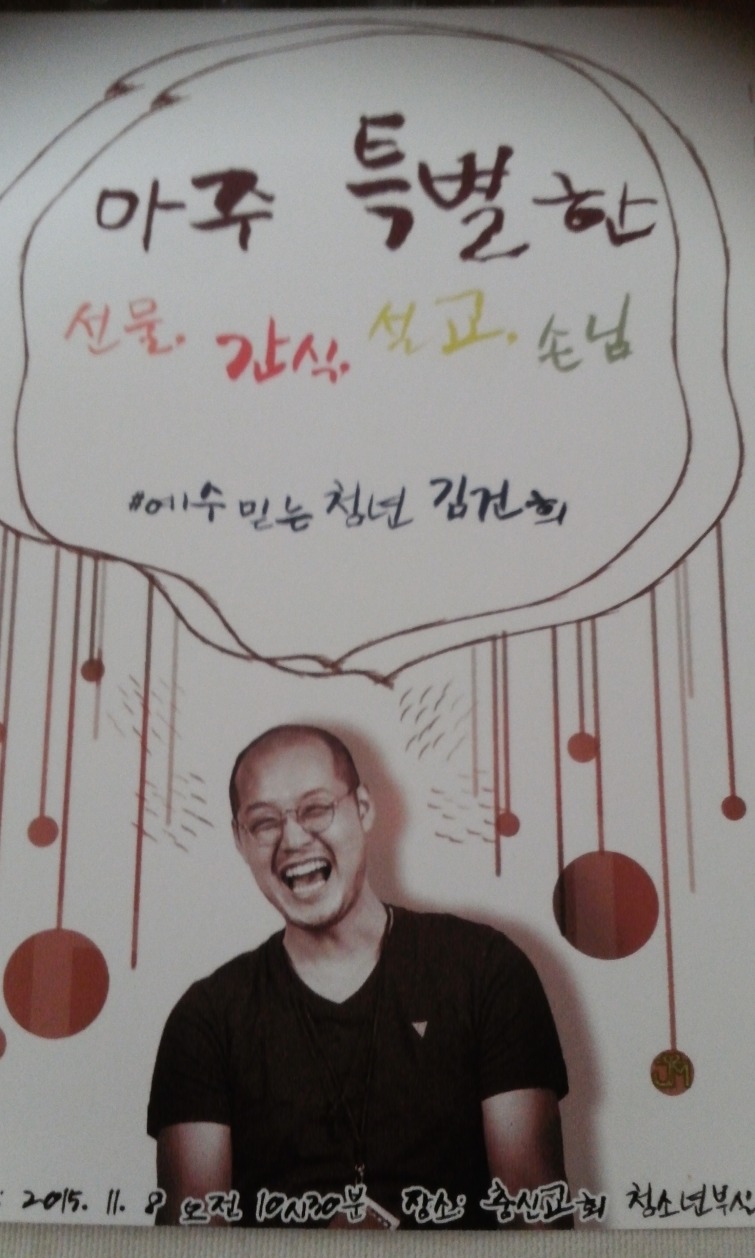 아주 특별한
선물. 간식. 설교. 손님
#예수 믿는 청년 김건희
JM
: 2015. 11. 8 오전 10시30분 장소: 충신교회 청소년부실